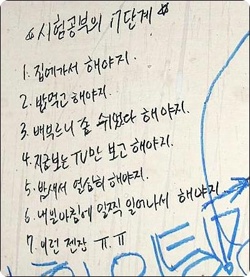 ☆시험공부의 17단계☆
1. 집에가서 해야지.
2. 밥먹고 해야지.
3. 배부르니 좀 쉬었다 해야지.
4. 지금보는 TV만 보고 해야지.
5. 밤새서 열심히 해야지.
6. 내일아침에 일찍 일어나서 해야지
7. 이런 젠장 ㅠㅠ